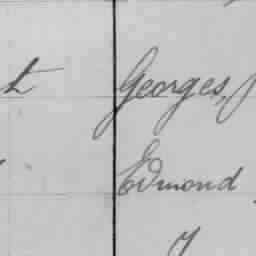 t Georges,
Edmond